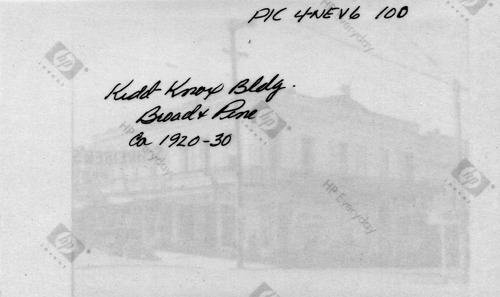 PIC 4-NEV6 100
Kidd Knox Bldg.
Broad & Pine
Ca 1920-30
HP Everyday
HP Everyday